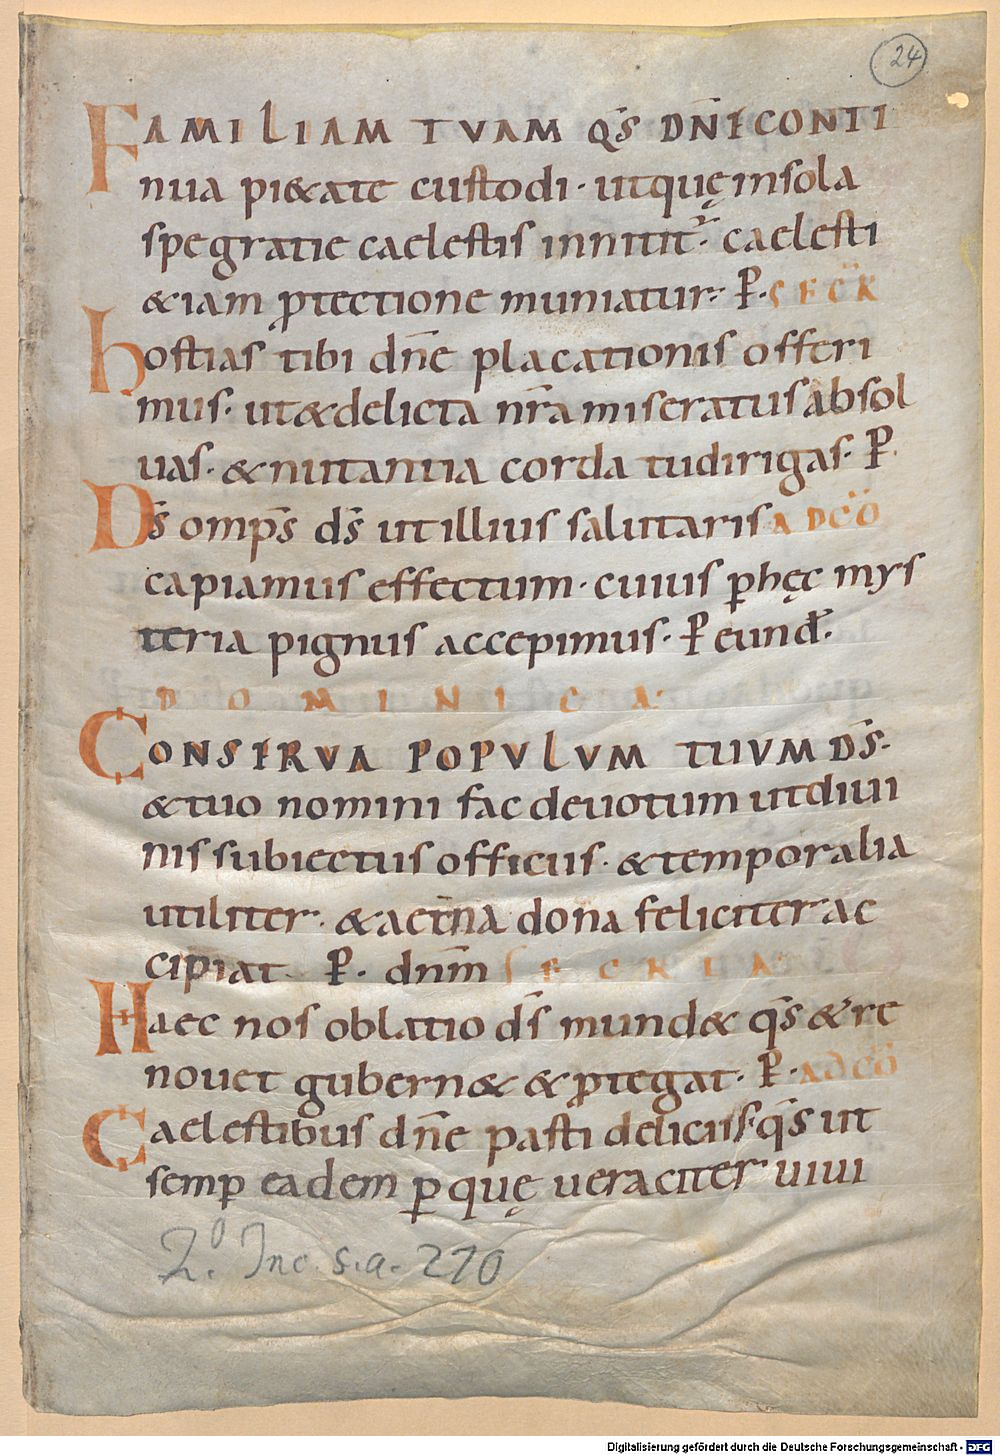 24
FAMILIAM TVAM QS̄ DN̄E CONTI
nua pi&ate custodi · utquę insola
spe gratie caelestis innitit᷒ · caelesti
&iam ꝓtectione muniatur · P̄ · SECR̄
hostias tibi dn̄e placationis offeri
mus · ut&delicta nr̄a miseratus absol
uas · & nutantia corda tu dirigas · P̄.
Ds̄ omps̄ ds̄ ut illius salutaris ADCŌ
capiamus effectum · cuius ꝑ hęc mys
teria pignus accepimus · P̄ eund̄.
DOMINICA
CONSERVA POPVLVM TUVM DS̄ ·
&tuo nomini fac deuotum ut diui
nis subiectus officiis · &temporalia
utiliter · & aet̄na dona feliciter ac
cipiat P̄ · dnm̄ SECRETA
Haec nos oblatio ds̄ mund& qs̄ & re
nouet gubern& & ꝓtegat · P̄ · ADCŌ
Caelestibus dn̄e pasti deliciis · qs̄ ut
semp̲ eadem ꝑ quę ueraciter uiui
2° Inc. s.a. 270
Digitalisierung gefördert durch die Deutsche Forschungsgemeinschaft - DFG